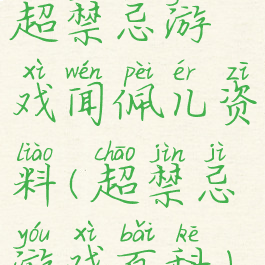 超禁忌游
xì wén pèi ér zī
戏闻佩儿资
liào chāo jìn jì
料(超禁忌
yóu xì bǎi kē
游戏百科)